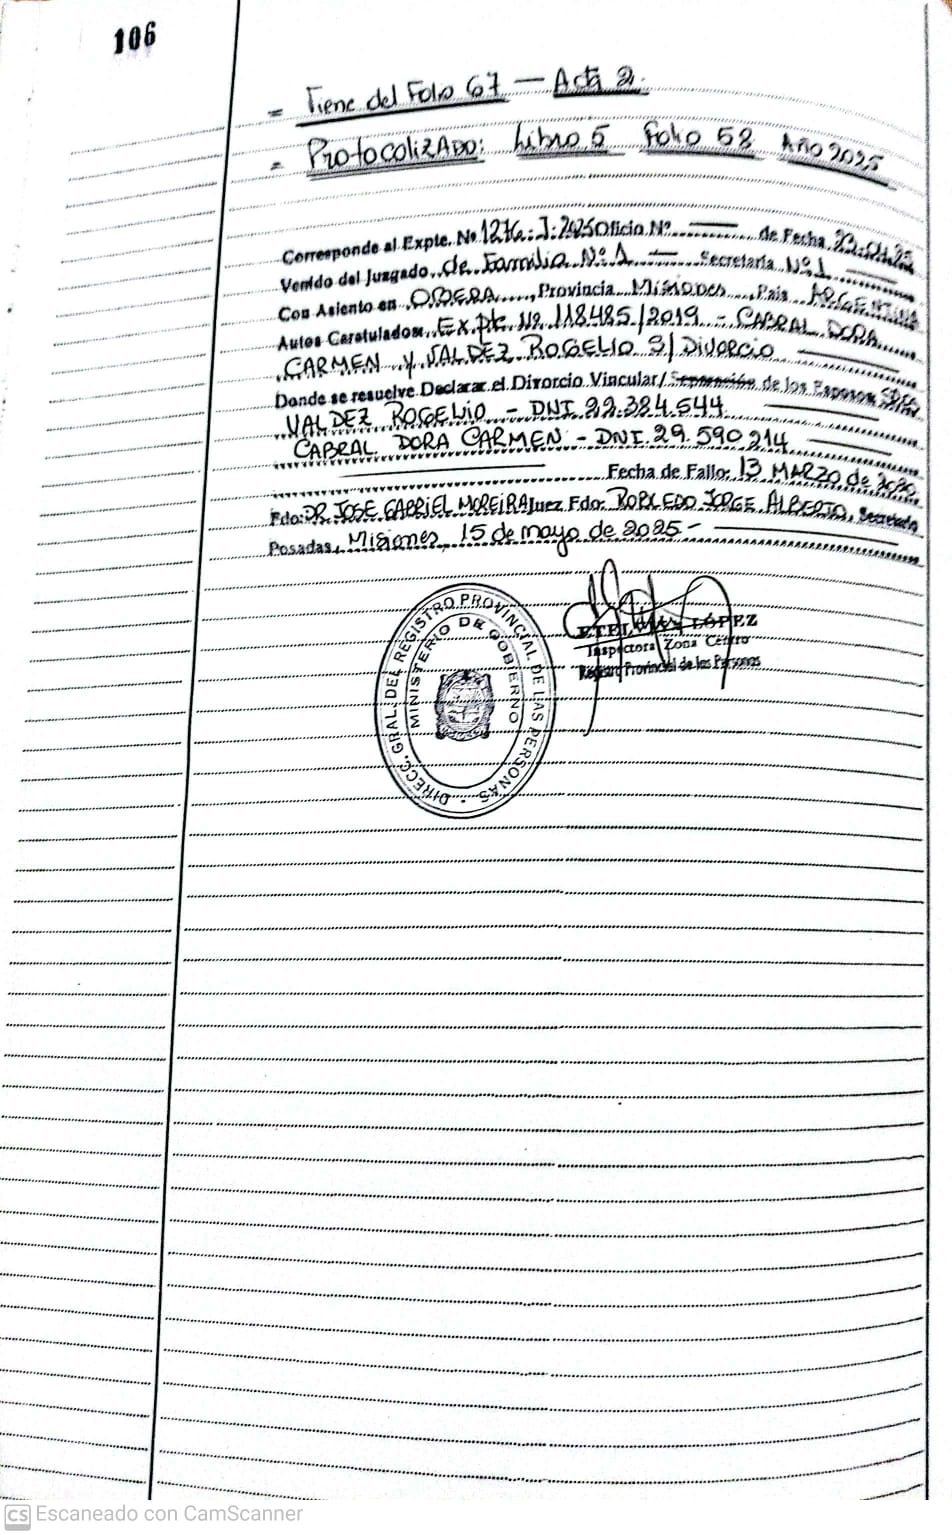 106
= Tiene del Folio 67 — Acta 2.
= Protocolizado: Libro 5 Folio 58 Año 2025
Corresponde al Expte. Nº 1276-J-2025 Oficio Nº —— de Fecha
Venido del Juzgado de Familia Nº 1 — Secretaria Nº 1
Con Asiento en OBERA, Provincia Misiones, Pais ARGENTINA
Autos Caratulados: Expte. Nº 118485/2019 - CABRAL DORA
CARMEN Y VALDEZ ROGELIO S/ Divorcio
Donde se resuelve Declarar el Divorcio Vincular/Separación de los Esposos
VALDEZ ROGELIO - DNI. 22.384.644
CABRAL DORA CARMEN - DNI. 29.590.214
Fecha de Fallo: 13 MARZO de 2020
Fdo: DR JOSE GABRIEL MOREIRA Juez Fdo: ROBLEDO JORGE ALBERTO, Secretario
Posadas, Misiones, 15 de mayo de 2025 -
DIRECC. GRAL. DEL REGISTRO PROVINCIAL DE LAS PERSONAS
MINISTERIO DE GOBIERNO
LÓPEZ
Inspectora Zona Centro
Registro Provincial de las Personas
CS Escaneado con CamScanner